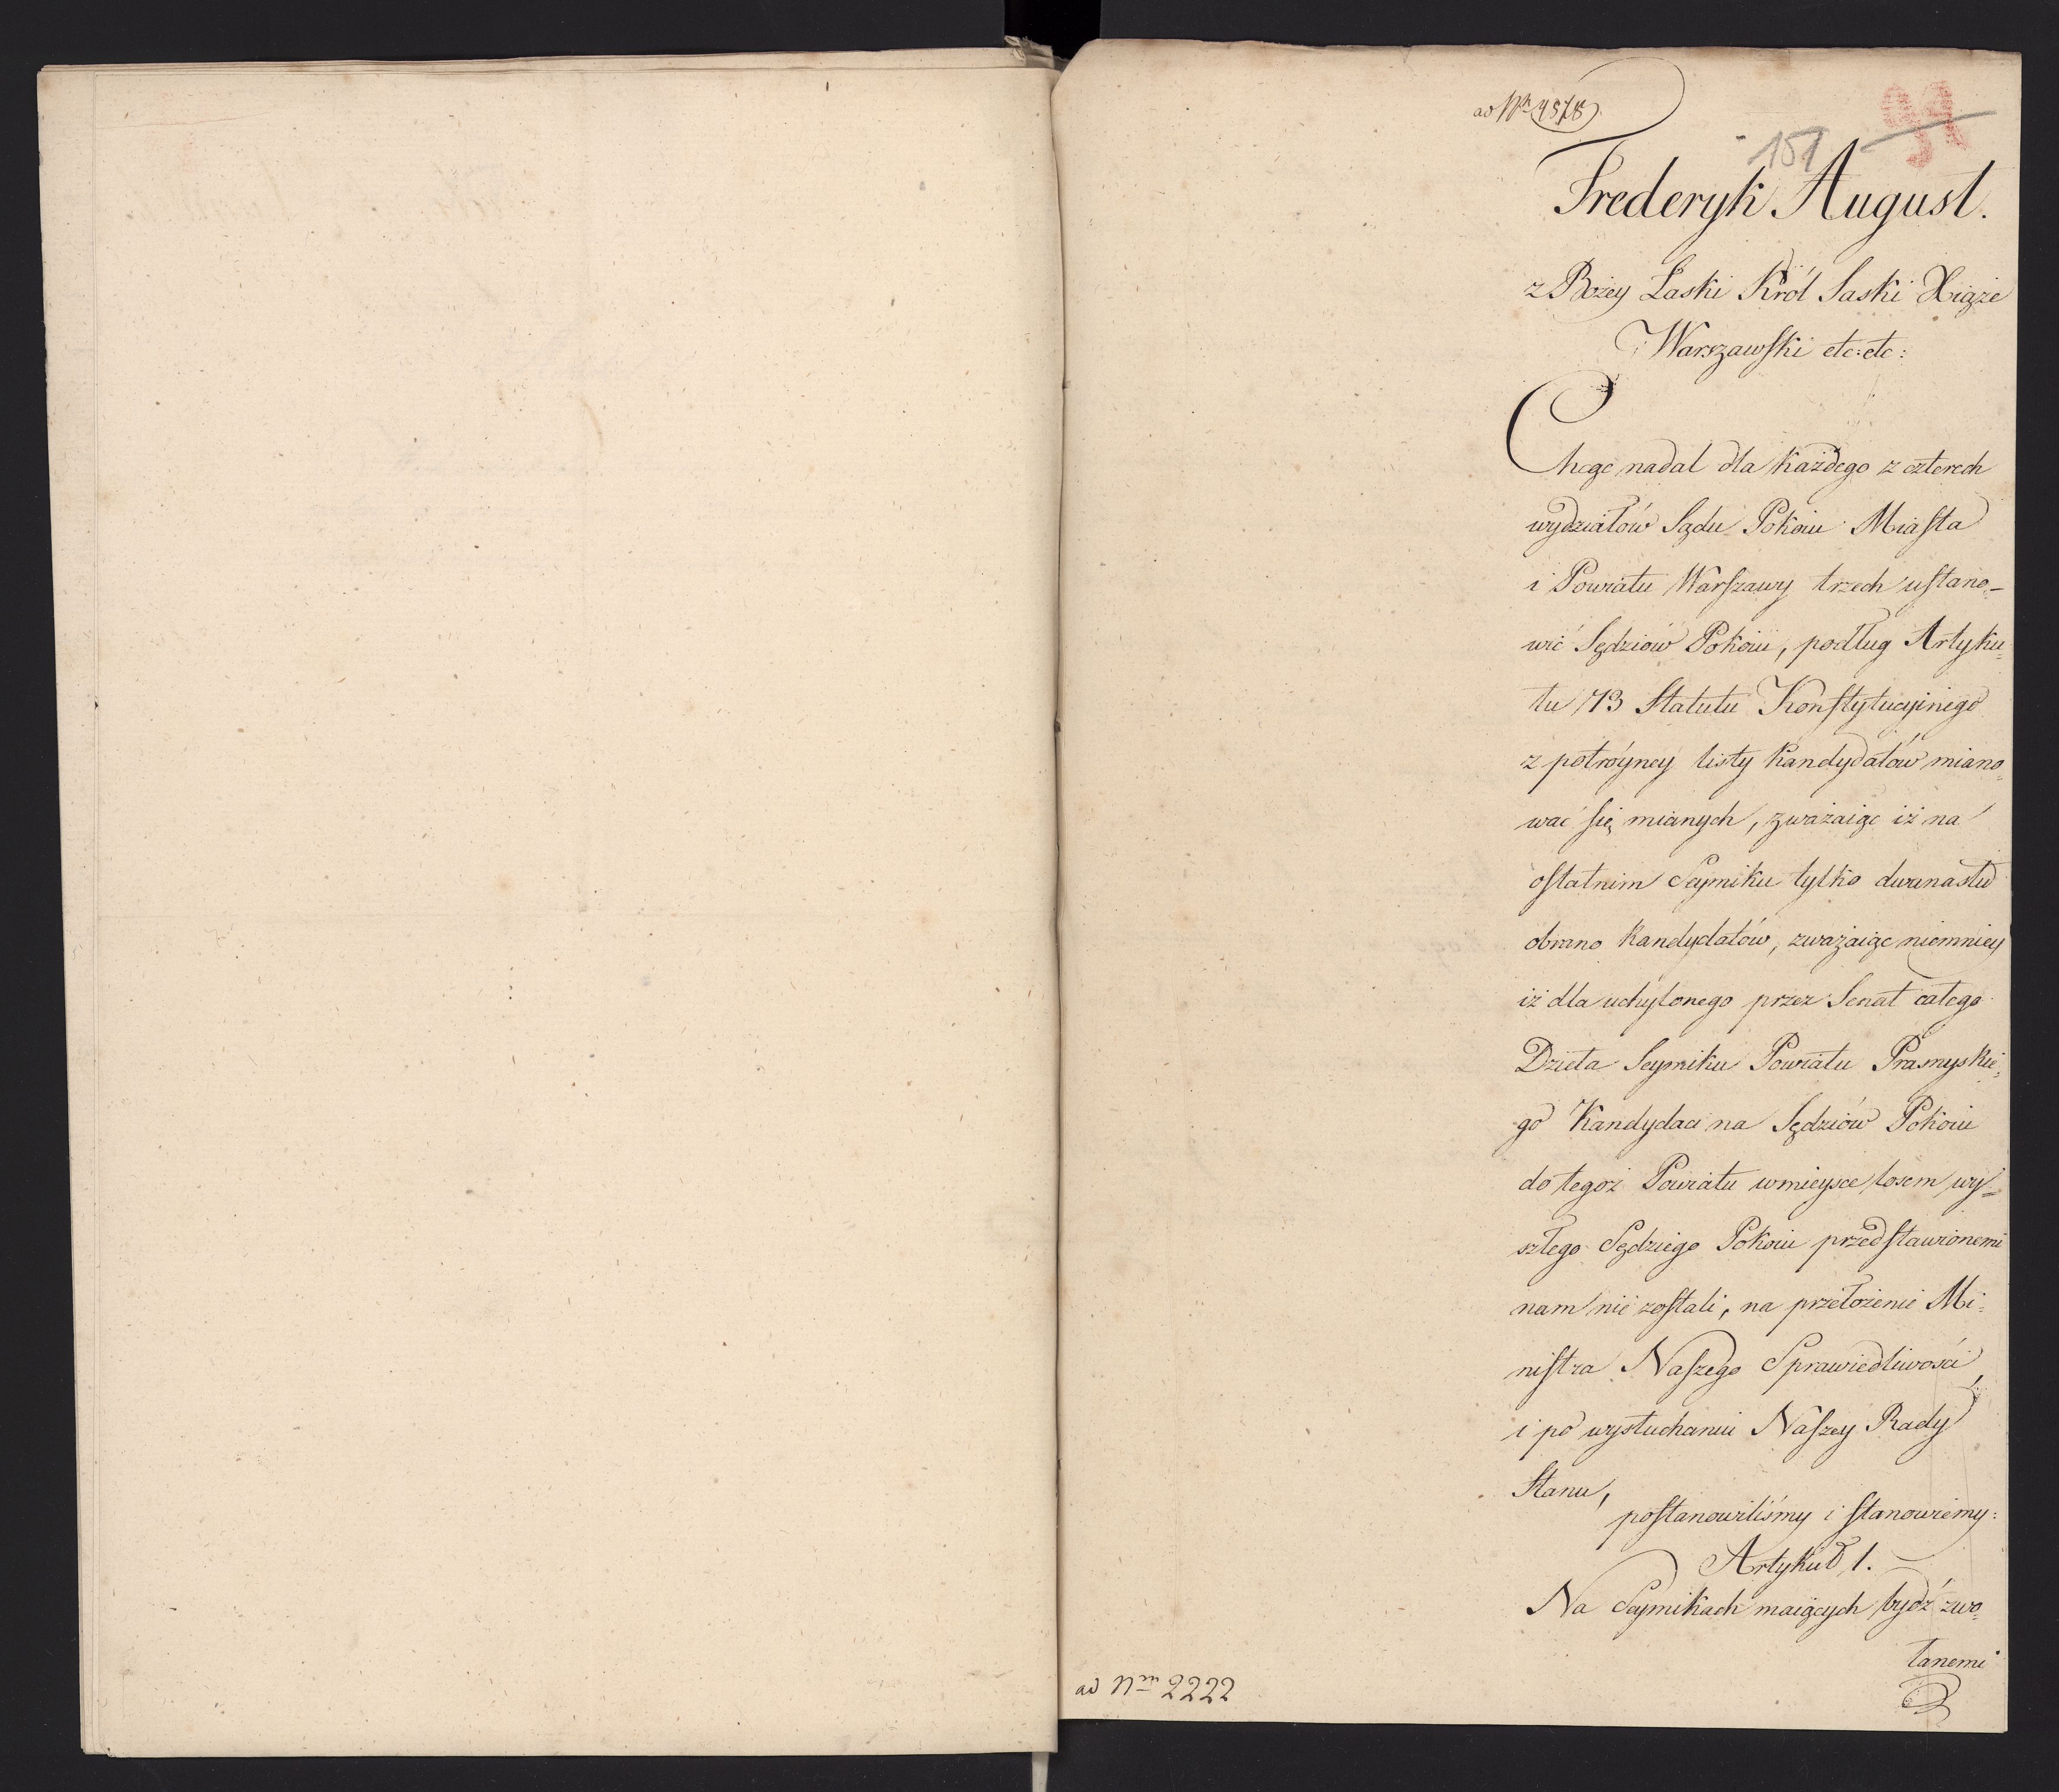 ad Nr 4578
91
151
Frederyk August.
z Bożey Łaski Król Saski Xiąże
Warszawski etc: etc:
Chcąc nadal dla każdego z czterech
wydziałów Sądu Pokoiu Miasta
i Powiatu Warszawy trzech ustano-
wić Sędziów Pokoiu, podług Artyku-
łu 73 Statutu Konstytucyinego
z potróyney listy kandydatów miano-
wać się mianych, zważaiąc iż na
ostatnim Seymiku tylko dwunastu
obrano kandydatów, zważaiąc niemniey
iż dla uchylonego przez Senat całego
Dzieła Seymiku Powiatu Prasnyskie-
go Kandydaci na Sędziów Pokoiu
do tegoż Powiatu w mieysce losem wy-
szłego Sędziego Pokoiu przedstawionemi
nam nie zostali, na przełożenie Mi-
nistra Naszego Sprawiedliwości,
i po wysłuchaniu Naszey Rady
Stanu,
postanowiliśmy i stanowiemy:
Artykuł 1.
Na Seymikach maiących bydź zwo-
łanemi
ad Nrm 2222